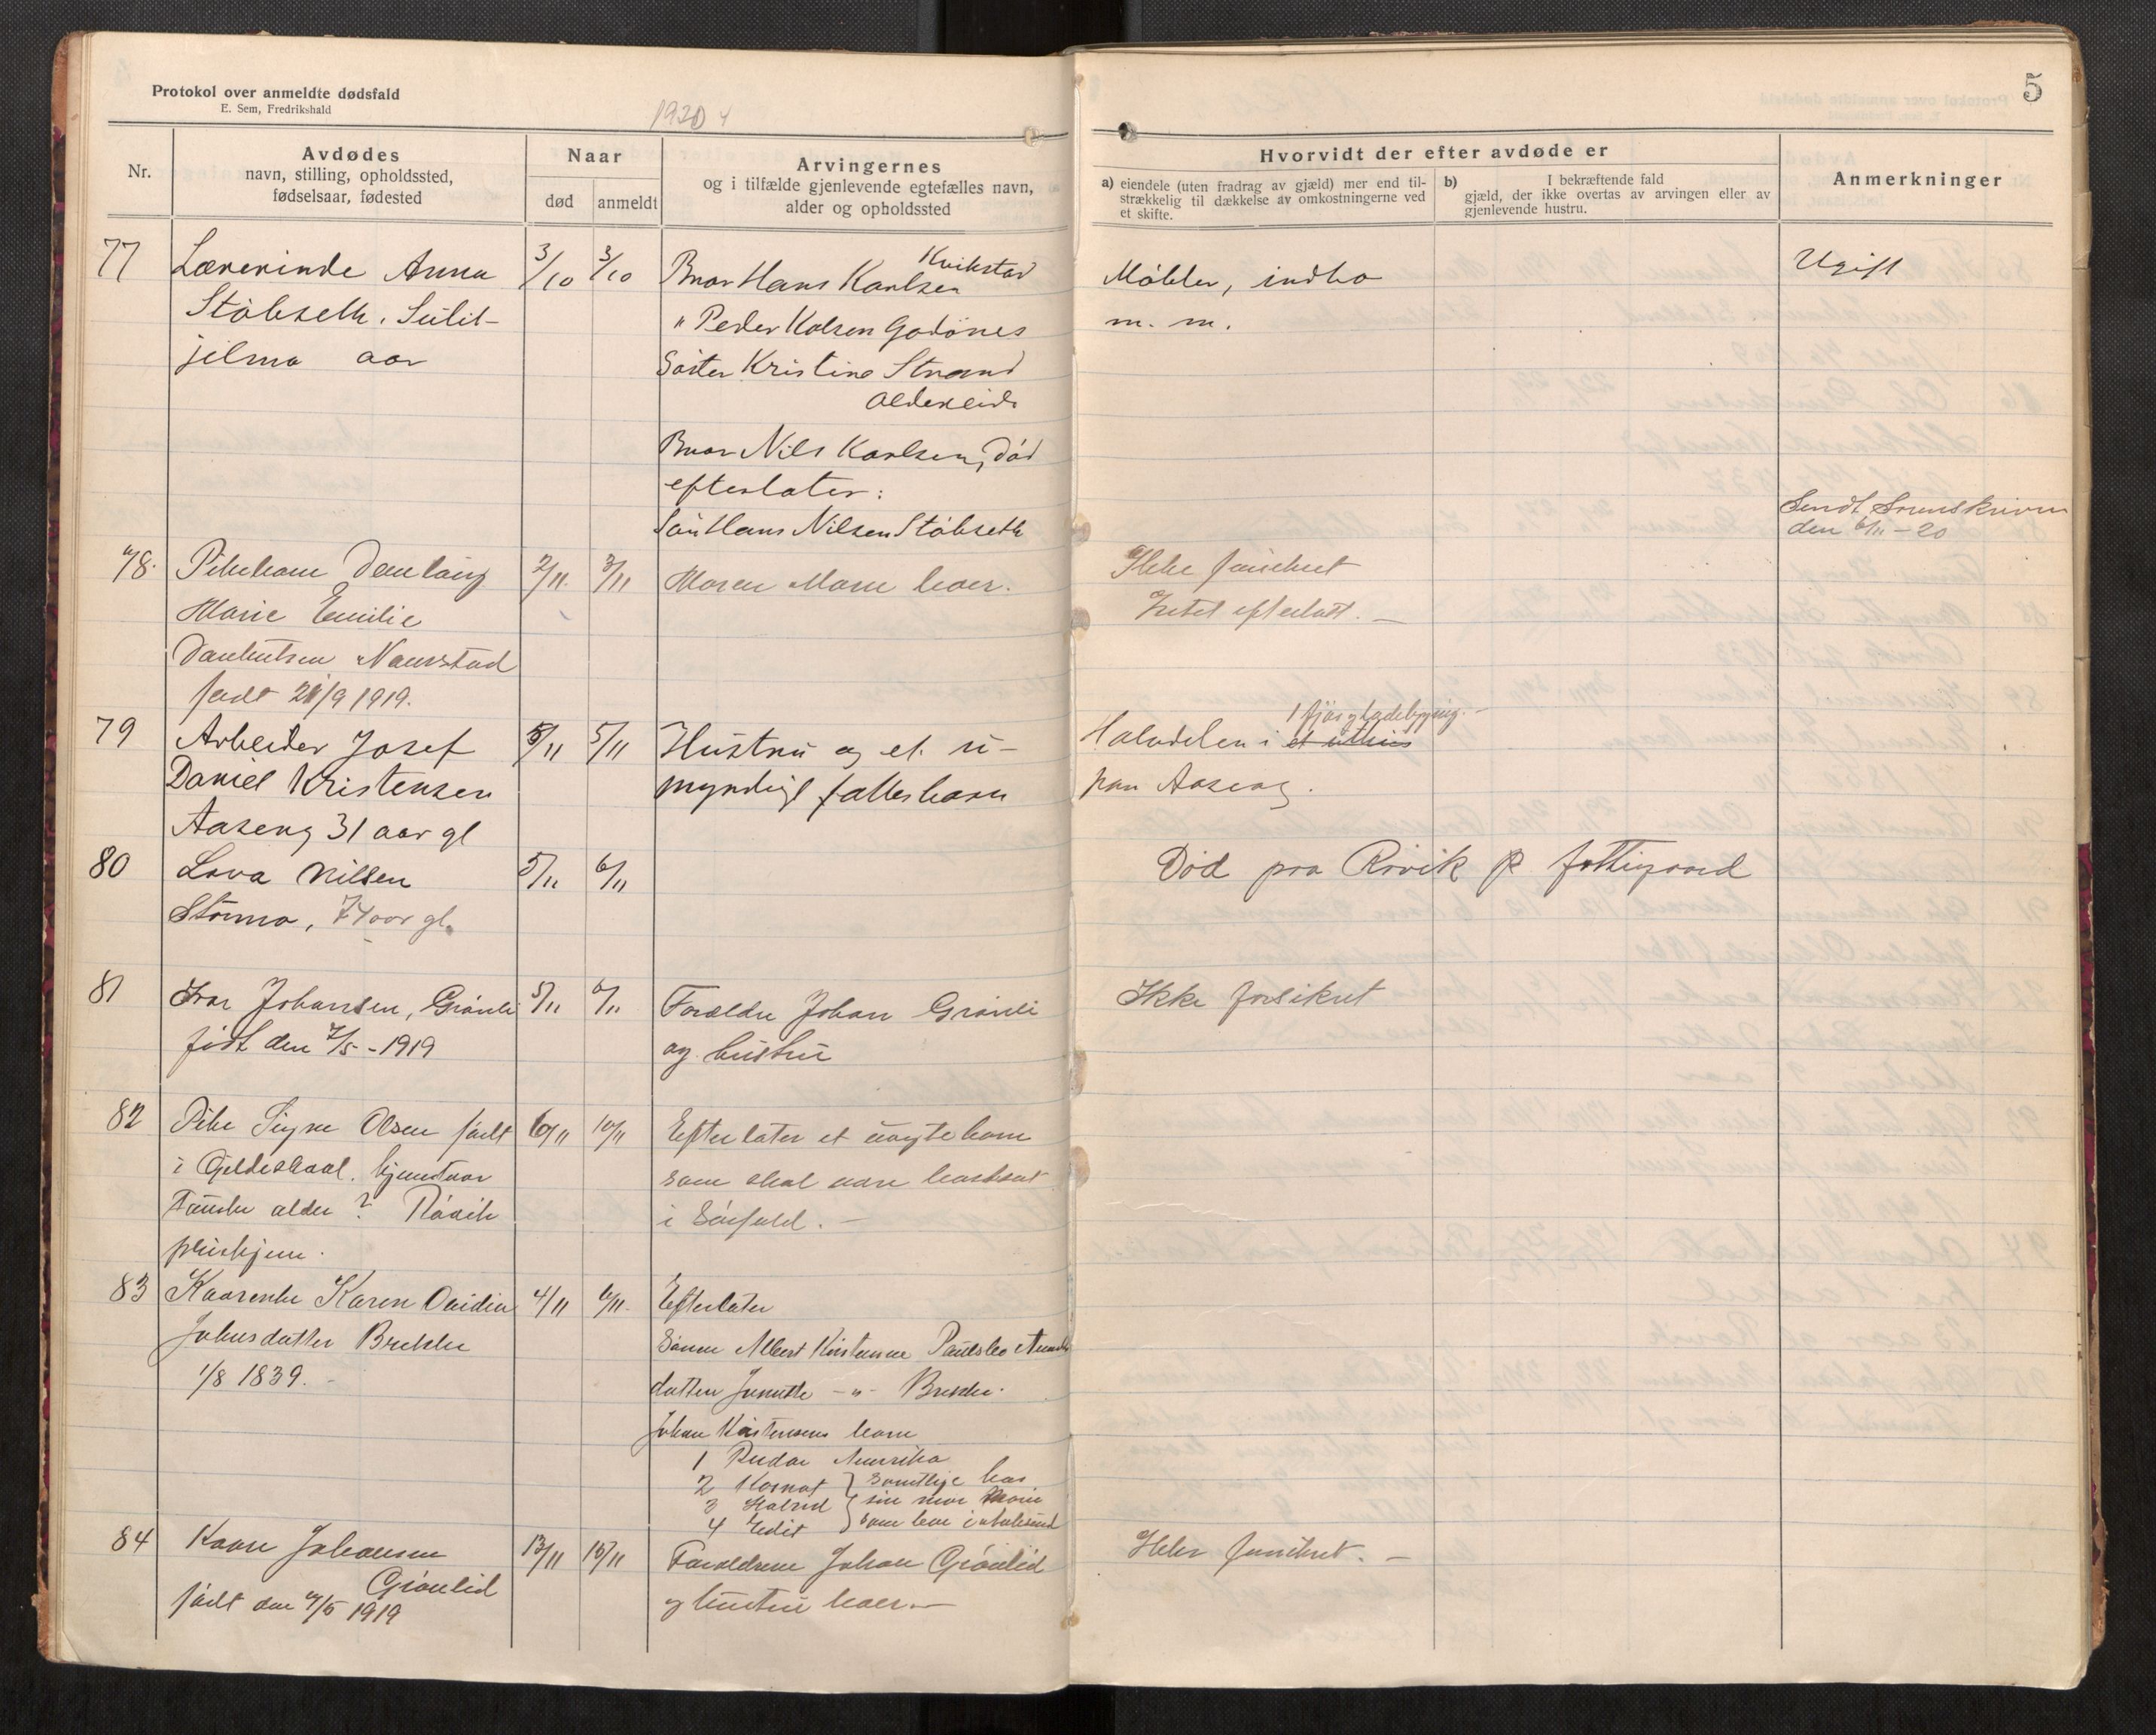 Protokol over anmeldte dødsfald
E. Sem, Fredrikshald
1920
4
5
Nr.
Avdødes
navn, stilling, opholdssted,
fødselsaar, fødested
Naar
død
anmeldt
Arvingernes
og i tilfælde gjenlevende egtefælles navn,
alder og opholdssted
Hvorvidt der efter avdøde er
a) eiendele (uten fradrag av gjæld) mer end til-
strækkelig til dækkelse av omkostningerne ved
et skifte.
b) I bekræftende fald
gjæld, der ikke overtas av arvingen eller av
gjenlevende hustru.
Anmerkninger
77
Lærerinde Anna
Støbseth. Sulit-
jelma aar
3/10
3/10
Kvikstad
Bror Hans Karlsen
" Peder Kalsen Godønes
Søster Kristine Strand
Bror Nils Karlsen, død
efterlater:
Søn Hans Nilsen Støbseth
Møbler, indbo
m. m.
Ugift
Sendt Sorenskriver
den 6/11 - 20
78.
Pikebarn
Marie Emilie
Naurstad
født 21/9 1919.
2/11.
3/11
Maren Marie lever.
Ikke forsikret
Intet efterlatt. —
79
Arbeider Josef
Daniel Kristensen
Aaseng 31 aar gl
5/11
5/11
Hustru og et u-
myndigt fællesbarn
1 fjøs og ladebygning. -
Halvdelen i et uthus
paa Aaseng.
80
Lova Nilsen
74 aar gl.
5/11
6/11
Død paa Røvik p. fattigaard
81
Ivar Johansen, Grønli
født den 7/5 - 1919
5/11
6/11
Forældre Johan Grønli
og hustru
Ikke forsikret
82
Pike Signe Olsen født
i Gildeskaal. hjemstavn
Fauske alder ? Røvik
pleiehjem.
6/11
10/11
Efterlater et uægte barn
som skal være bortsat
i Sørfold. —
83
Kaarenke Karen
Johnsdatter Brekke
1/8 1839. -
4/11
6/11.
Efterlater
Sønne Albert Kristensen
datter -"- Brekke.
Johan Kristensens barn
1 Peder Amerika
2 Konrat } samtlige hos
3 } sin mor Marie
4 Edit } som bor i
84
Kaare Johansen
Grønlid
født den 7/5 1919
13/11
15/11
Forældrene Johan Grønlid
og hustru lever. —
Ikke forsikret. —